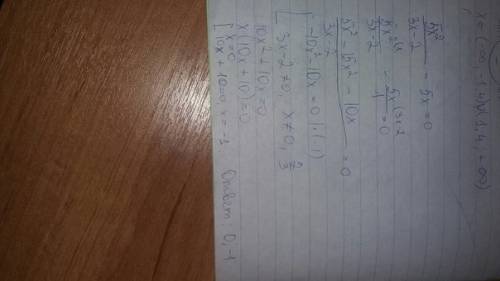 5x²/(3x-2) - 5x = 0
5x²/(3x-2) - 5x(3x-2)/1 = 0
(5x² - 15x² - 10x)/(3x-2) = 0
-10x² - 10x = 0 | : (-1)
3x - 2 ≠ 0, x ≠ 0, 2/3
10x² + 10x = 0
x(10x + 10) = 0
x = 0
10x + 10 = 0 x = -1
Ответ 0, -1